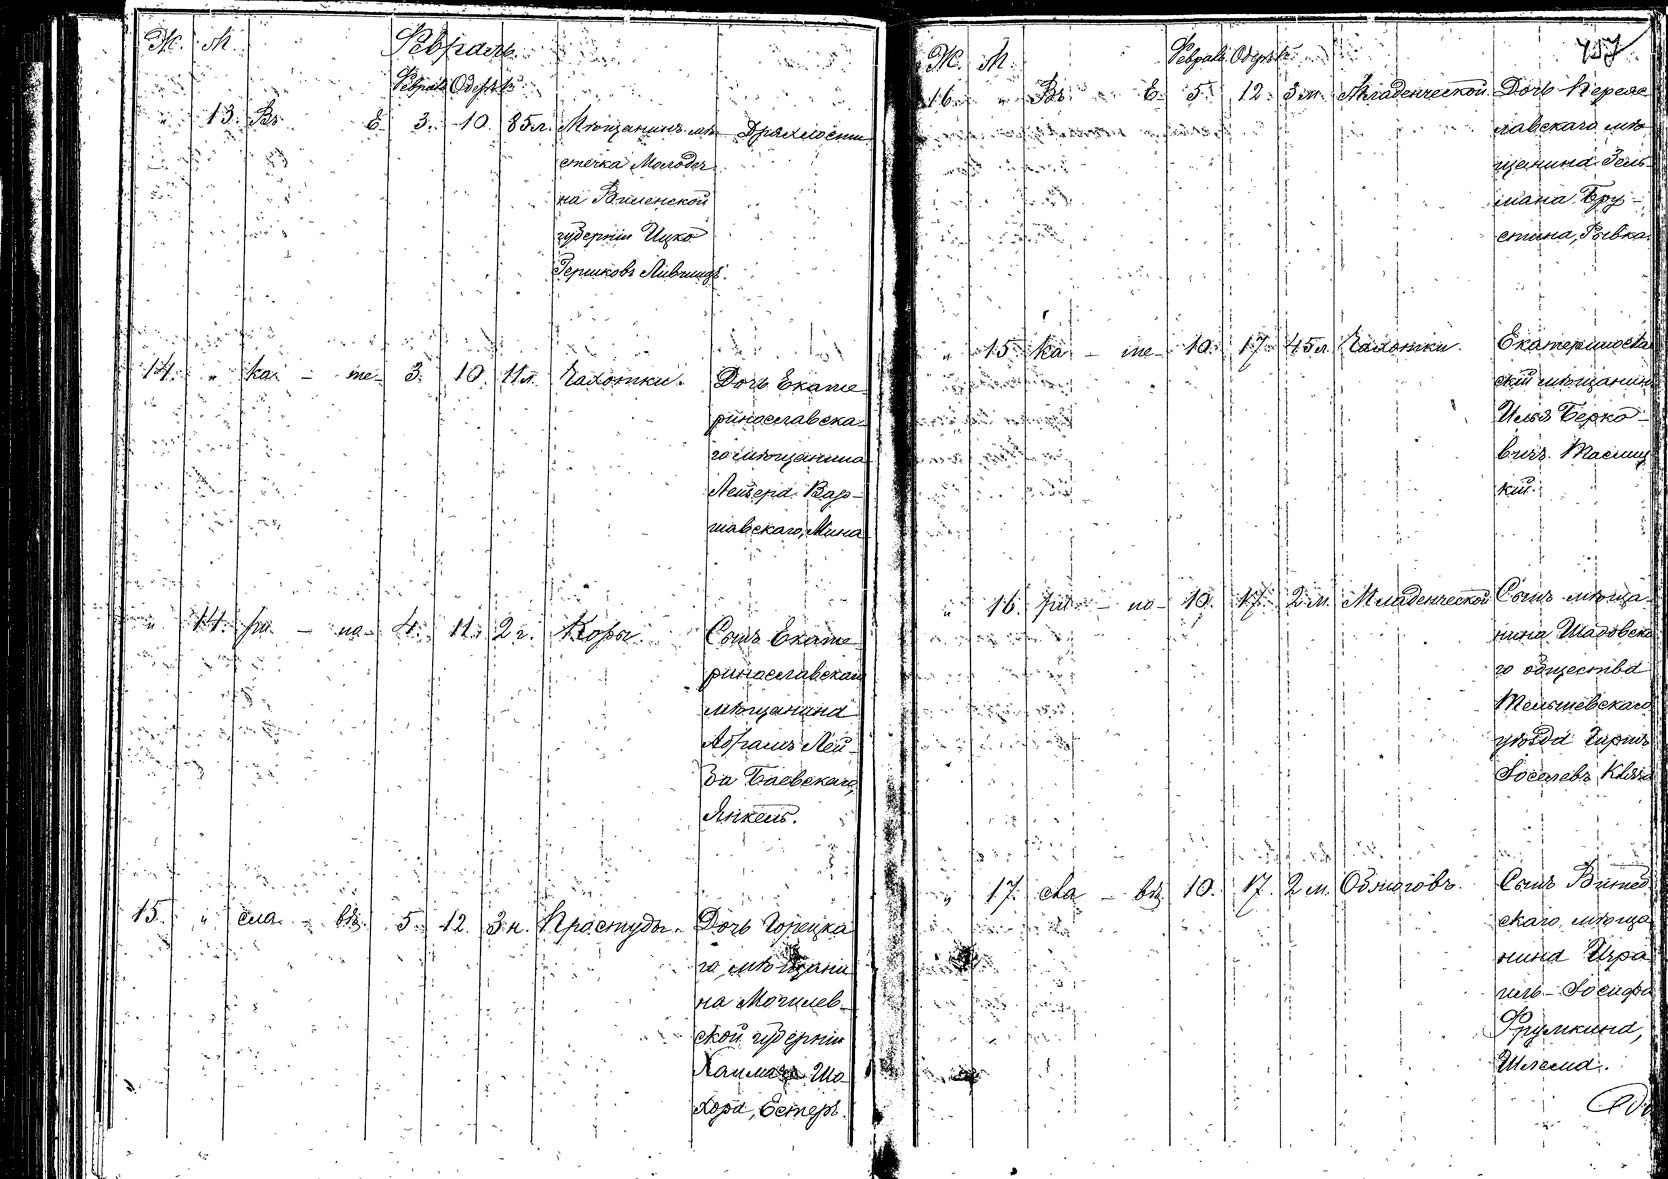 Ж. М. Февраль
Февраль Одеръ
13. Въ Е. 3. 10. 85 л. Мѣщанинъ мѣ- Дряхлости
стечка Молодеч
на Виленской
губерніи Ицко
Гершковъ Лившицъ.
14. " ка - те- 3. 10. 11 л. Чахотки. Дочь Екате
ринославска-
го мѣщанина
Лейзера Вар-
шавскаго, Мина
" 14. ри - но- 4. 11. 2 г. Коры Сынъ Екате
ринославскаго
мѣщанина
Абрамъ Лей-
ба Баевскаго,
Янкель.
15. " сла - вѣ. 5. 12. 3 н. Простуды. Дочь Горецка
го мѣщани
на Могилев-
ской губерніи
Хаима Шо
хора, Естеръ.
Ж. М. Февраль Одеръ
16. " Въ Е. 5. 12. 3 м. Младенческой Дочь Переяс
лавскаго мѣ
щанина Зель
мана Бру-
стина, Рывка.
" 15. ка - те- 10. 17. 45 л. Чахотки. Екатеринослав
скій мѣщанинъ
Илья Берко-
вичъ
кій.
" 16. ри - но- 10. 17. 2 м. Младенческой Сынъ мѣща-
нина Шадовска
го общества
Тельшевскаго
уѣзда Гиршъ
Іоселевъ
" 17. сла - вѣ 10. 17. 2 м. Обжоговъ. Сынъ Витеб
скаго мѣща
нина Изра
иль-Іосифа
Фрумкина,
Шлема.